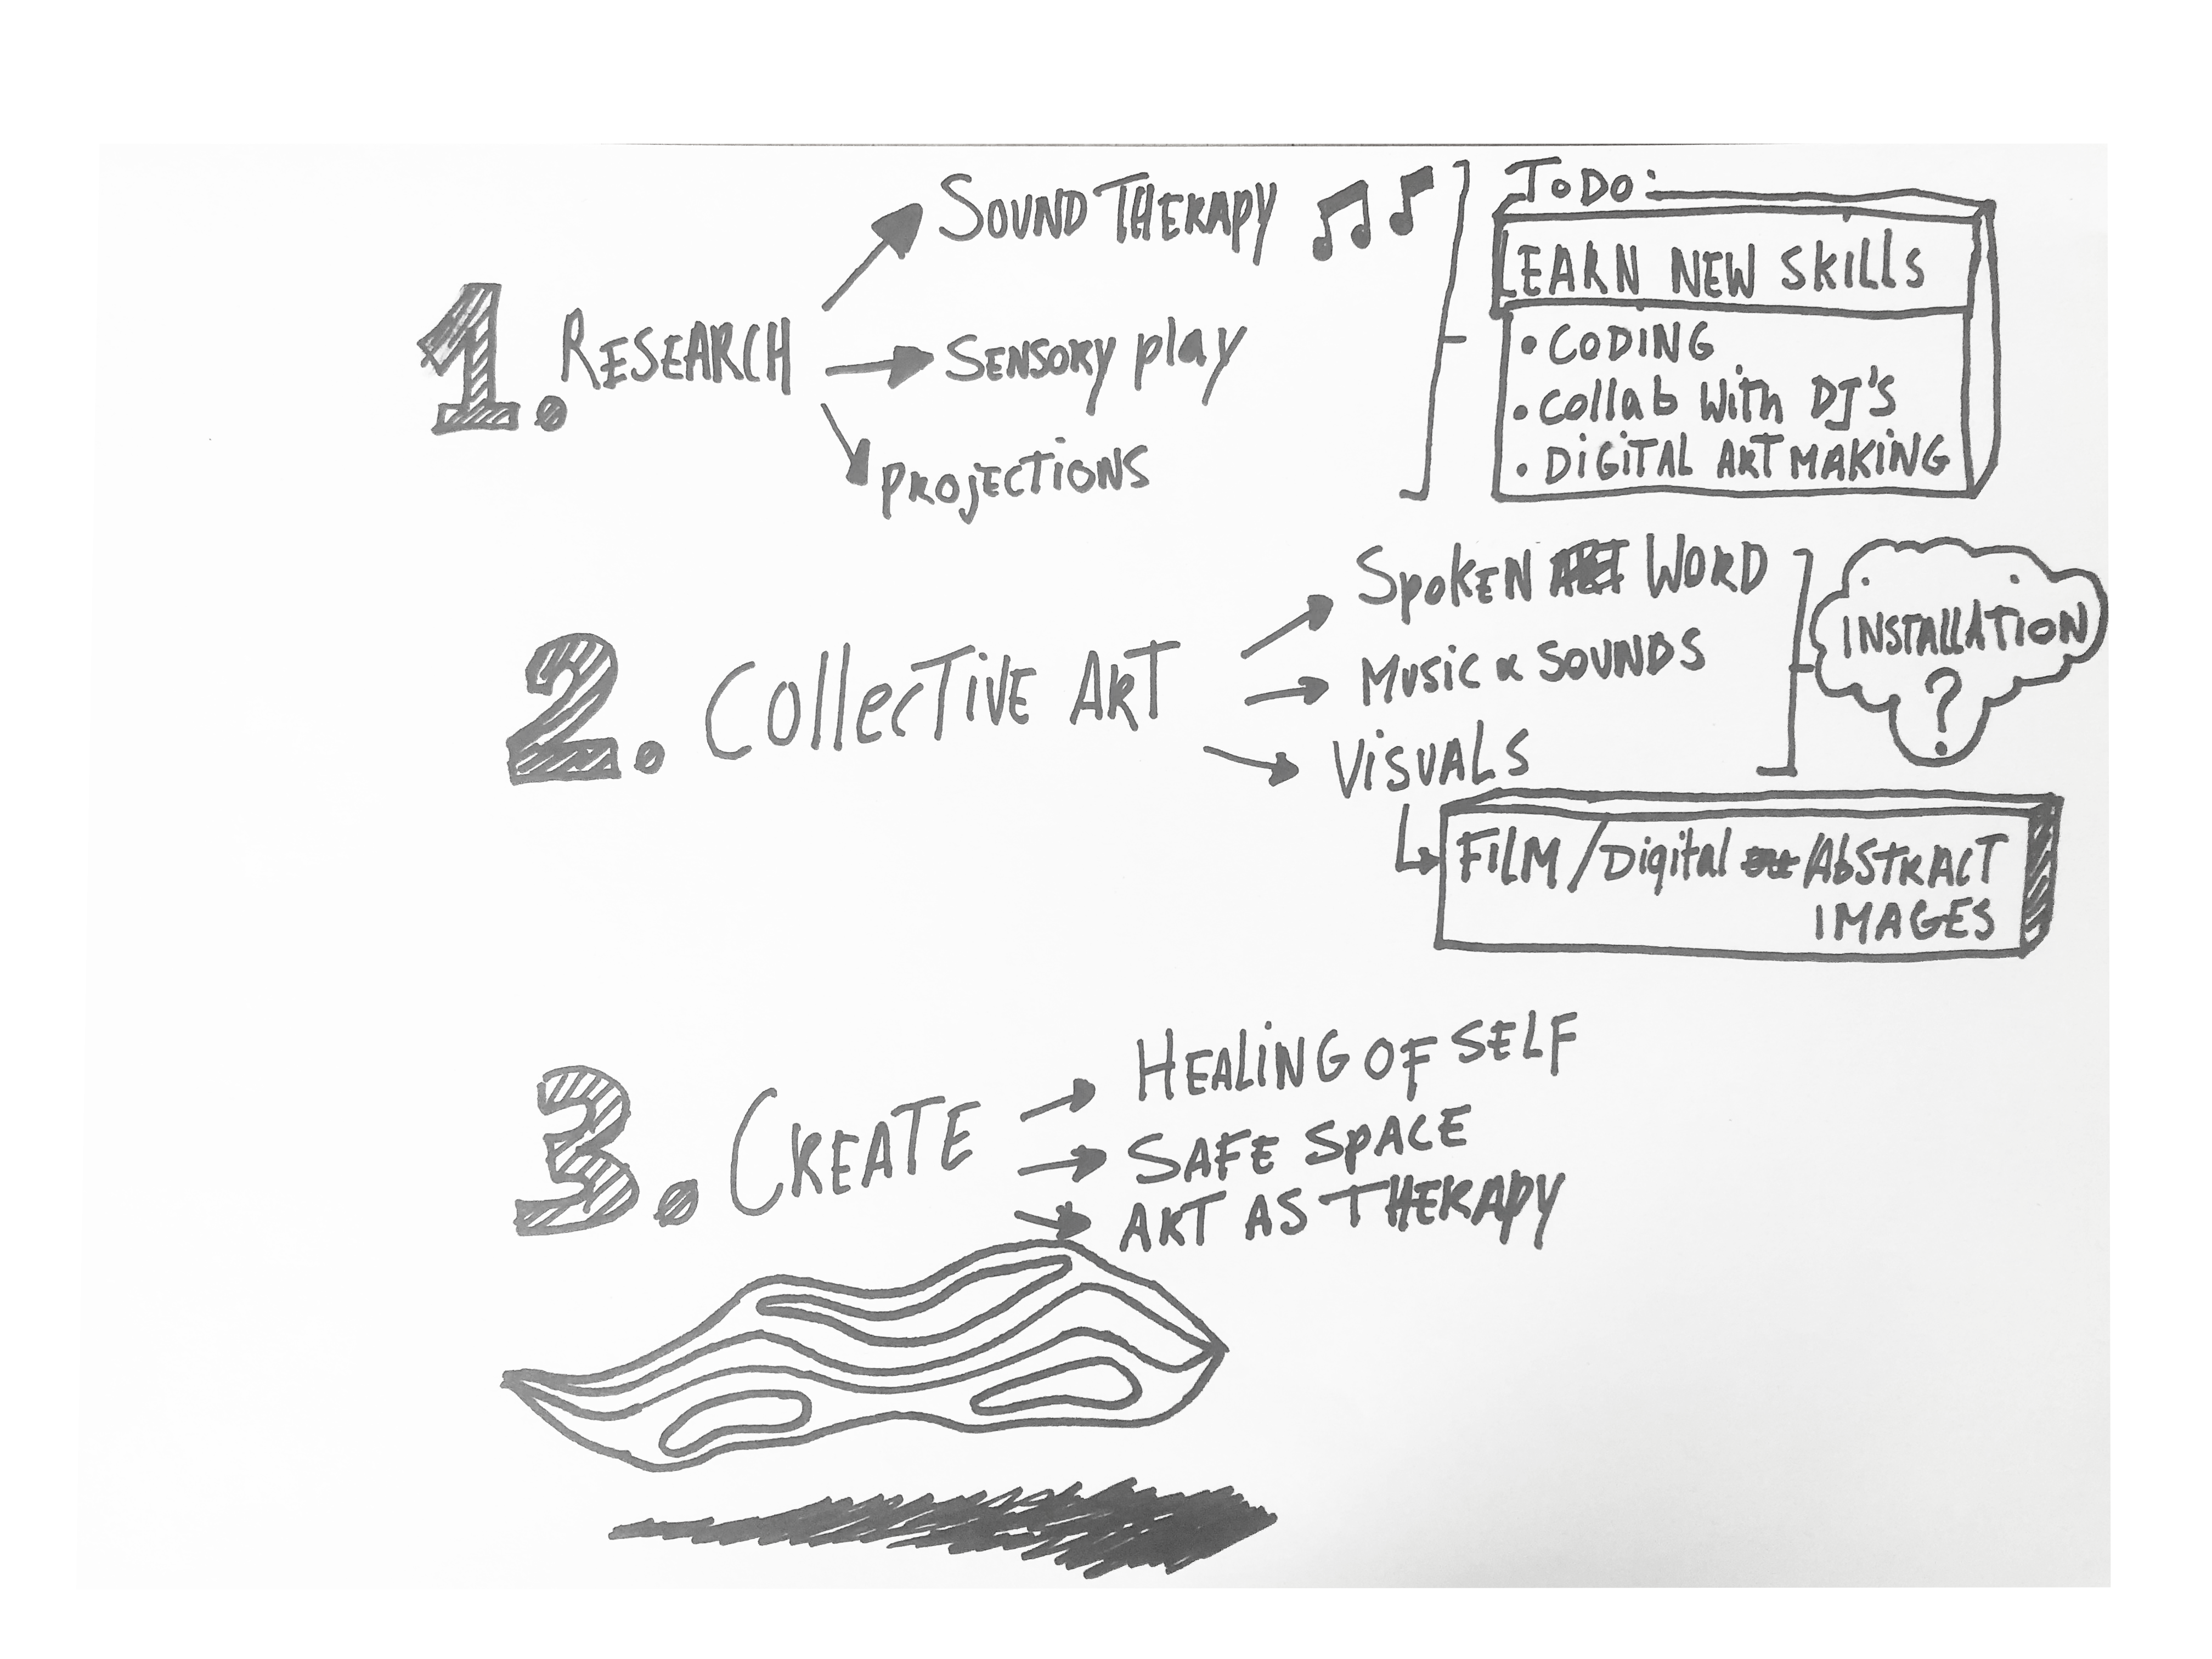 1. RESEARCH
SOUND THERAPY
SENSORY play
PROJECTIONS
ToDo:
LEARN NEW SKILLS
• CODING
• Collab With DJ'S
• DIGITAL ART MAKING
2. Collective ART
Spoken ART WORD
MUSIC & SOUNDS
VISUALS
INSTALLATION
?
FILM/Digital /AbSTRACT
IMAGES
3. CREATE
HEALING OF SELF
SAFE SPACE
ART AS THERAPY